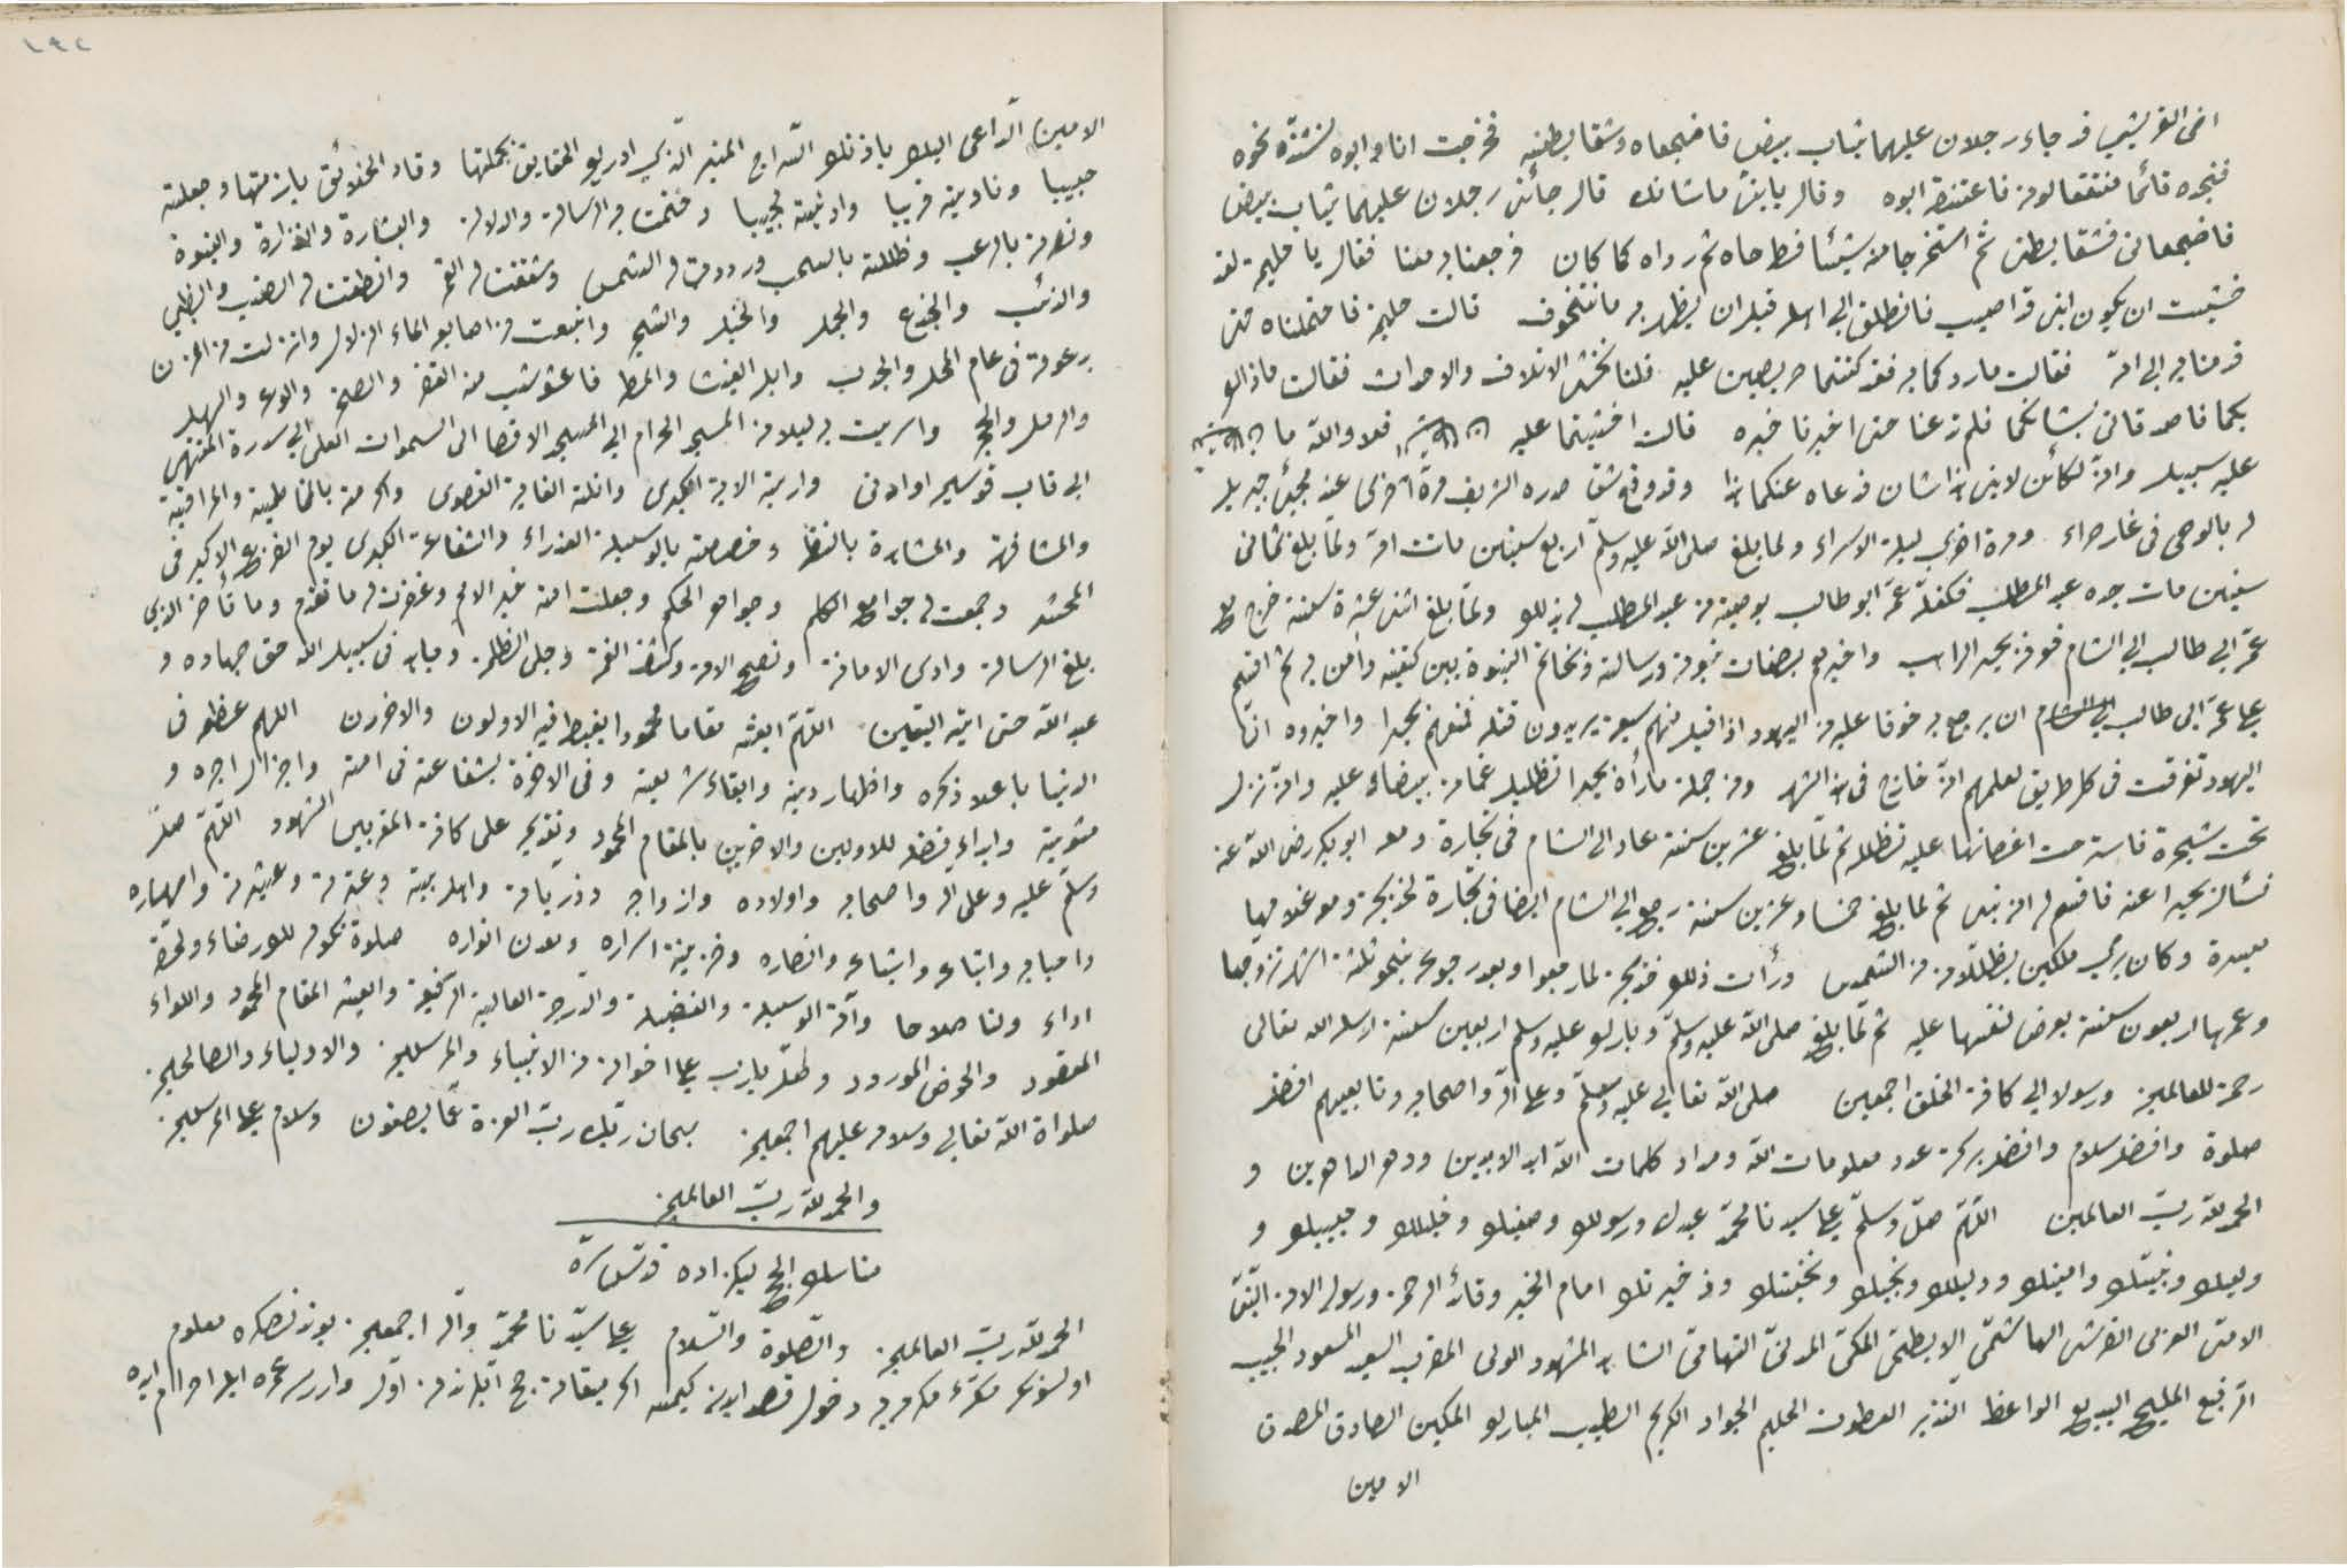 اخى القريشي قد جاءه رجلان عليهما ثياب بيض فاضجعاه وشقا بطنه فخرجت انا وابوه نشتد نحوه
فنجده قائما منتقعا لونه فاعتنقه ابوه وقال يا بنى ما شانك قال جائنى رجلان عليهما ثياب بيض
فاضجعانى فشقا بطنى ثم استخرجا منه شيئا فطرحاه ثم رداه كما كان فرجعنا به معنا فقال يا حليمة لقد
خشيت ان يكون ابنى قد اصيب فانطلقى الى اهله قبل ان يظهر به ما نتخوف قالت حليمة فاحتملناه حتى
قدمنا به الى امه فقالت ما ردكما به فقد كنتما حريصين عليه قلنا نخشى الاتلاف والاحداث فقالت ماذا
بكما فاصدقانى شانكما فلم تدعنا حتى اخبرناها خبره قالت اخشيتما عليه الشيطان فلا والله ما للشيطان
عليه سبيل وانه لكائن لابنى هذا شان فدعاه عنكما وقد وقع شق صدره الشريف مرة اخرى عند مجئ جبريل
له بالوحى فى غار حراء ومرة اخرى ليلة الاسراء ولما بلغ صلى الله عليه وسلم اربع سنين ماتت امه ولما بلغ ثمانى
سنين مات جده عبد المطلب فكفله عمه ابو طالب بوصية من عبد المطلب له بذلك ولما بلغ اثنى عشرة سنة خرج مع
عمه ابي طالب الي الشام فعرفه بحيرا الراهب واخبرهم بصفات نبوته ورسالته وبخاتم النبوة بين كتفيه وامن به ثم اقسم
على عمه ابى طالب ان يرجع به خوفا عليه من اليهود اذ اقبل منهم سبعة يريدون قتله فمنعهم بحيرا واخبروه ان
اليهود تفرقت فى كل طريق لعلمهم انه خارج فى هذا الشهر ومن جملة ما رأه بحيرا تظليل غمامة بيضاء عليه وانه نزل
تحت شجرة فاسترحت اغصانها عليه تظلله ثم لما بلغ عشرين سنة عاد الى الشام فى تجارة ومعه ابو بكر رضى الله عنه
فسأل بحيرا عنه فاقسم له انه نبى ثم لما بلغ خمسا وعشرين سنة رجع الي الشام ايضا فى تجارة لخديجة ومعه غلامها
ميسرة وكان يري ملكين يظللانه من الشمس ورأت ذلك خديجة لما رجعوا وبعد رجوعه بنحو ثلثة اشهر تزوجها
وعمرها اربعون سنة بعرض نفسها عليه ثم لما بلغ صلى الله عليه وسلم وبارك عليه وسلم اربعين سنة ارسله الله تعالى
رحمة للعالمين ورسولا الي كافة الخلق اجمعين صلى الله تعالي عليه وسلم وعلى آله واصحابه وتابعيهم افضل
صلوة وافضل سلام وافضل بركة عدد معلومات الله ومداد كلمات الله ابد الابدين ودهر الداهرين و
الحمد لله رب العالمين اللهم صل وسلم على سيدنا محمد عبدك ورسولك وصفيك وخليلك وحبيبك و
وليك ونبيك وامينك ودليلك ونجيك ونخبتك وذخيرتك امام الخير وقائد الرحمة ورسول الامة النبى
الامى العربى القرشى الهاشمى الابطحى المكى المدنى التهامى الشاهد المشهود الولى المقرب السعيد المسعود الحبيب
الرفيع المليح البديع الواعظ النذير العطوف الحليم الجواد الكريم الطيب المبارك المكين الصادق المصدق
الامين
الامين الداعى اليك باذنك السراج المنير الذي ادرك الحقايق بجملتها وقاد الخلائق بازمتها وجعلته
حبيبا وناديته قريبا وادنيته نجيبا وختمت به الرسالة والدلالة والبشارة والنذارة والنبوة
ونصرته بالرعب وظللته بالسحب ورددت له الشمس وشققت له القمر وانطقت له الضب والظبي
والذئب والجذع والجمل والجبل والشجر وانبعت من اصابعه الماء الزلال وانزلت من المزن
بدعوته فى عام المحل والجدب وابل الغيث والمطر فاعشوشب منه القفر والصخر والوعر والسهل
والرمل والحجر واسريت به ليلا من المسجد الحرام الي المسجد الاقصا الى السموات العلى الي سدرة المنتهى
الى قاب قوسين او ادنى واريته الاية الكبرى وانلته الغاية القصوى واكرمته بالمخاطبة والمراقبة
والمشافهة والمشاهدة بالنظر وخصصته بالوسيلة العذراء والشفاعة الكبرى يوم الفزع الاكبر فى
المحشر وجمعت له جوامع الكلم وجواهر الحكم وجعلت امته خير الامم وغفرت له ما تقدم وما تأخر الذي
بلغ الرسالة وادى الامانة ونصح الامة وكشف الغمة وجلى الظلمة وجاهد فى سبيل الله حق جهاده و
عبد الله حتى اتيه اليقين اللهم ابعثه مقاما محمودا يغبطه فيه الاولون والاخرون اللهم عظمه فى
الدنيا باعلاء ذكره واظهار دينه وابقاء شريعته وفى الاخرة بشفاعته فى امته واجزال اجره و
مثوبته وابداء فضله للاولين والاخرين بالمقام المحمود وتقديمه على كافة المقربين الشهود اللهم صل
وسلم عليه وعلى اله واصحابه واولاده وازواجه وذرياته واهل بيته وعترته وعشيرته واصهاره
واحبابه واتباعه واشياعه وانصاره وخزينة اسراره ومعدن انواره صلوة تكون لك رضاء ولحقه
اداء ولنا صلاحا وآته الوسيلة والفضيلة والدرجة العالية الرفيعة وابعثه المقام المحمود واللواء
المعقود والحوض المورود وصل يا رب على اخوانه من الانبياء والمرسلين والاولياء والصالحين
صلواة الله تعالي وسلامه عليهم اجمعين سبحان ربك رب العزة عما يصفون وسلام على المرسلين
والحمد لله رب العالمين
مناسك الحج ليكزاده قدس سره
الحمد لله رب العالمين والصلوة والسلام على سيدنا محمد وآله اجمعين بوندنصكره معلوم
اولسونكه مكهٔ مكرمه يه دخول قصد ايدن كيمسه اكر ميقاته حج آيلرندن اول وارر سه عمره ايله احرام ايده